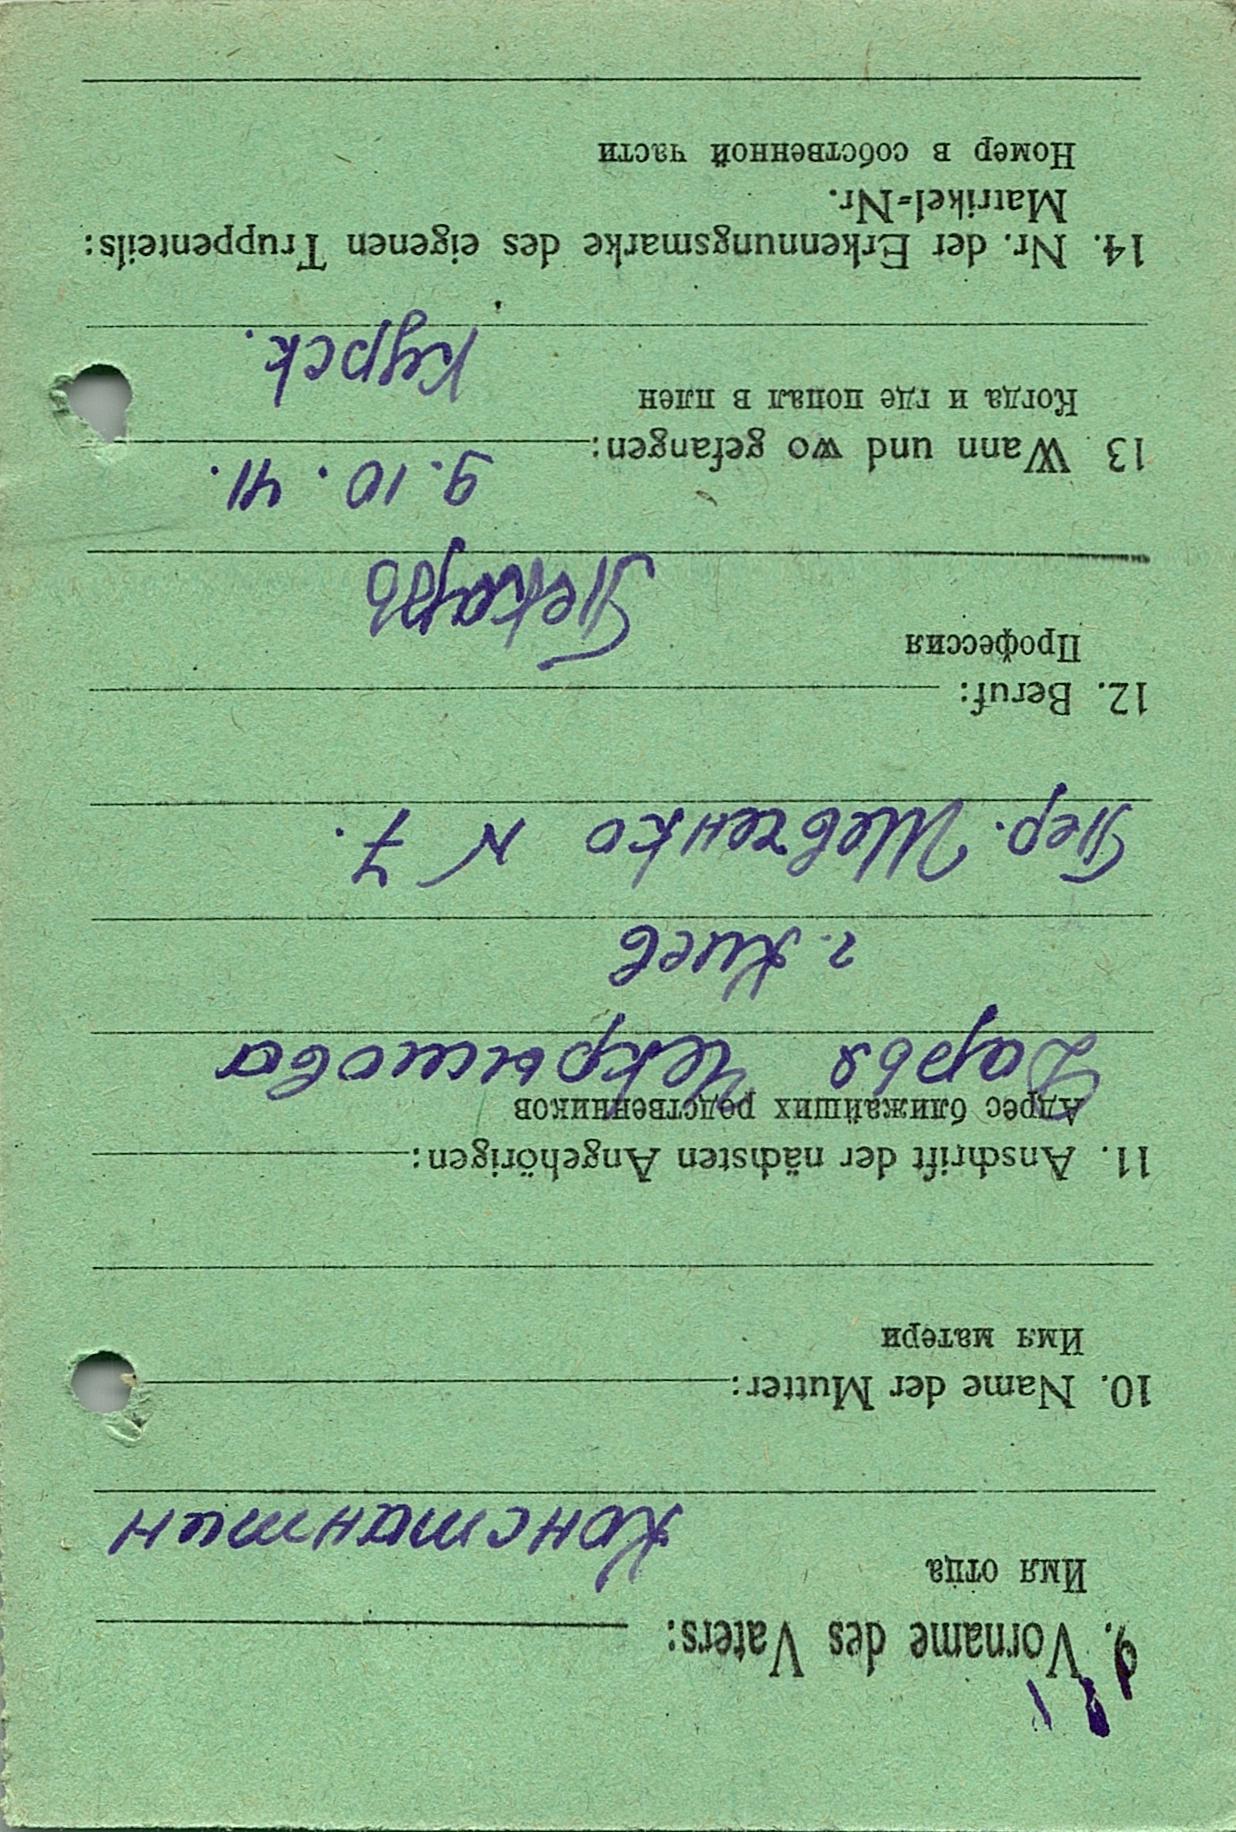 9. Vorname des Vaters:
Имя отца
Константин
10. Name der Mutter:
Имя матери
11. Anschrift der nächsten Angehörigen:
Адрес ближайших родственников
Дарья Чекрышова
г. Киев
Пер. Шевченко N 7.
12. Beruf:
Профессия
Пекарь
13 Wann und wo gefangen:
9.10.41.
Когда и где попал в плен
Курск.
14. Nr. der Erkennungsmarke des eigenen Truppenteils:
Matrikel=Nr.
Номер в собственной части